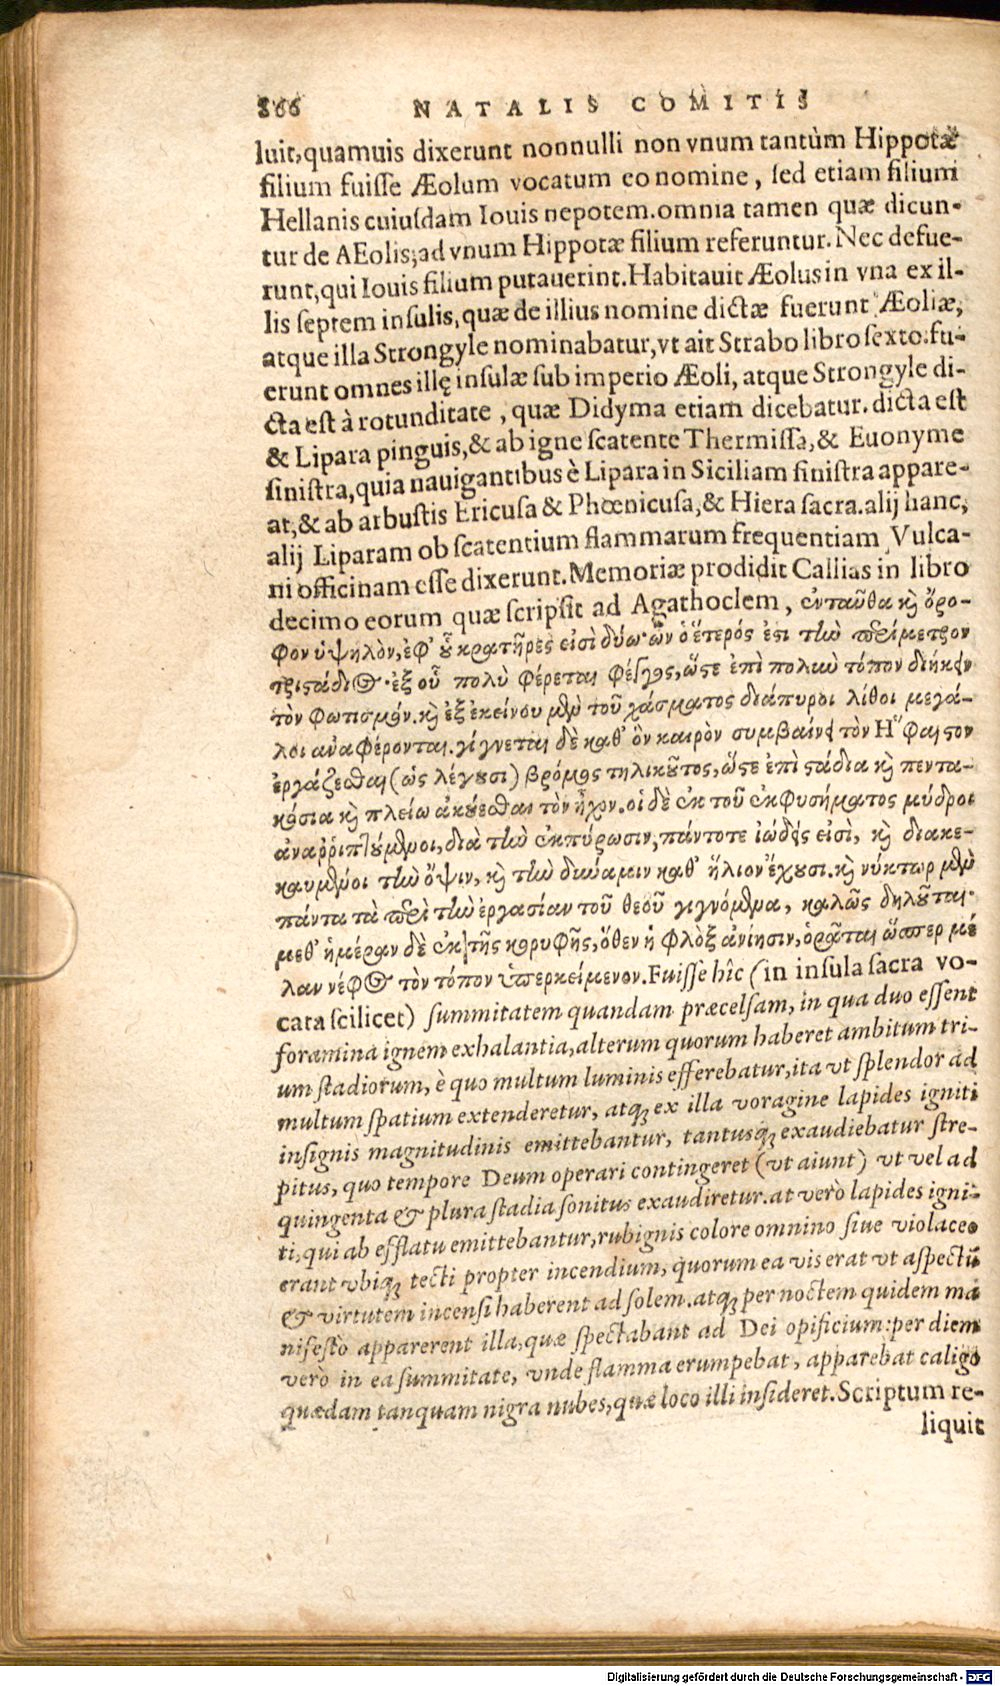 866 NATALIS COMITIS
luit, quamuis dixerunt nonnulli non vnum tantùm Hippotæ
filium fuisse Æolum vocatum eo nomine, sed etiam filium
Hellanis cuiusdam Iouis nepotem. omnia tamen quæ dicun-
tur de AEolis, ad vnum Hippotæ filium referuntur. Nec defue-
runt, qui Iouis filium putauerint. Habitauit Æolus in vna ex il-
lis septem insulis, quæ de illius nomine dictæ fuerunt Æoliæ,
atque illa Strongyle nominabatur, vt ait Strabo libro sexto. fu-
erunt omnes illę insulæ sub imperio Æoli, atque Strongyle di-
cta est à rotunditate, quæ Didyma etiam dicebatur. dicta est
& Lipara pinguis, & ab igne scatente Thermissa, & Euonyme
sinistra, quia nauigantibus è Lipara in Siciliam sinistra appare-
at, & ab arbustis Ericusa & Phœnicusa, & Hiera sacra. alij hanc,
alij Liparam ob scatentium flammarum frequentiam Vulca-
ni officinam esse dixerunt. Memoriæ prodidit Callias in libro
decimo eorum quæ scripsit ad Agathoclem, ἐνταῦθα κὶ ὄρο-
φον ὑψηλὸν, ἐφ᾽ οὗ κρατῆρες εἰσὶ δύω· ὧν ὁ ἕτερός ἐστι τὴν περίμετρον
τριστάδιος· ἐξ οὗ πολὺ φέρεται φέγγος, ὥστε ἐπὶ πολιὺ τόπον διήκειν
τὸν φωτισμόν. κὶ ἐξ ἐκείνου μὲν τοῦ χάσματος διάπυροι λίθοι μεγά-
λοι ἀναφέρονται. γίγνεται δὲ καθ᾽ ὃν καιρὸν συμβαίνει τὸν Ηφαιστον
ἐργάζεσθαι (ὡς λέγουσι) βρόμος τηλικοῦτος, ὥστε ἐπὶ στάδια κὶ πεντα-
κόσια κὶ πλείω ἀκούεσθαι τὸν ἦχον. οἱ δὲ ἐκ τοῦ ἐκφυσήματος μύδροι
ἀναρριπτούμενοι, διὰ τὴν ἐκπύρωσιν, πάντοτε ἰώδεις εἰσὶ, κὶ διακε-
καυμένοι τὴν ὄψιν, κὶ τὴν δύναμιν καθ᾽ ἥλιον ἔχουσι. κὶ νύκτωρ μὲν
πάντα τὰ περὶ τὴν ἐργασίαν τοῦ θεοῦ γιγνόμενα, καλῶς δηλοῦται·
μεθ᾽ ἡμέραν δὲ ἐκ τῆς κορυφῆς, ὅθεν ἡ φλὸξ ἀνίησιν, ὁρᾶται ὥσπερ μέ
λαν νέφος τὸν τόπον ὑπερκείμενον. Fuisse hîc (in insula sacra vo-
cata scilicet) summitatem quandam præcelsam, in qua duo essent
foramina ignem exhalantia, alterum quorum haberet ambitum tri-
um stadiorum, è quo multum luminis efferebatur, ita vt splendor ad
multum spatium extenderetur, atq; ex illa voragine lapides igniti
insignis magnitudinis emittebantur, tantusq; exaudiebatur stre-
pitus, quo tempore Deum operari contingeret (vt aiunt) vt vel ad
quingenta & plura stadia sonitus exaudiretur. at verò lapides igni-
ti, qui ab efflatu emittebantur, rubignis colore omnino siue violaceo
erant vbiq; tecti propter incendium, quorum ea vis erat vt aspectū
& virtutem incensi haberent ad solem. atq; per noctem quidem ma
nifestò apparerent illa, quæ spectabant ad Dei opificium: per diem
verò in ea summitate, vnde flamma erumpebat, apparebat caligo
quædam tanquam nigra nubes, quæ loco illi insideret. Scriptum re-
liquit
Digitalisierung gefördert durch die Deutsche Forschungsgemeinschaft - DFG